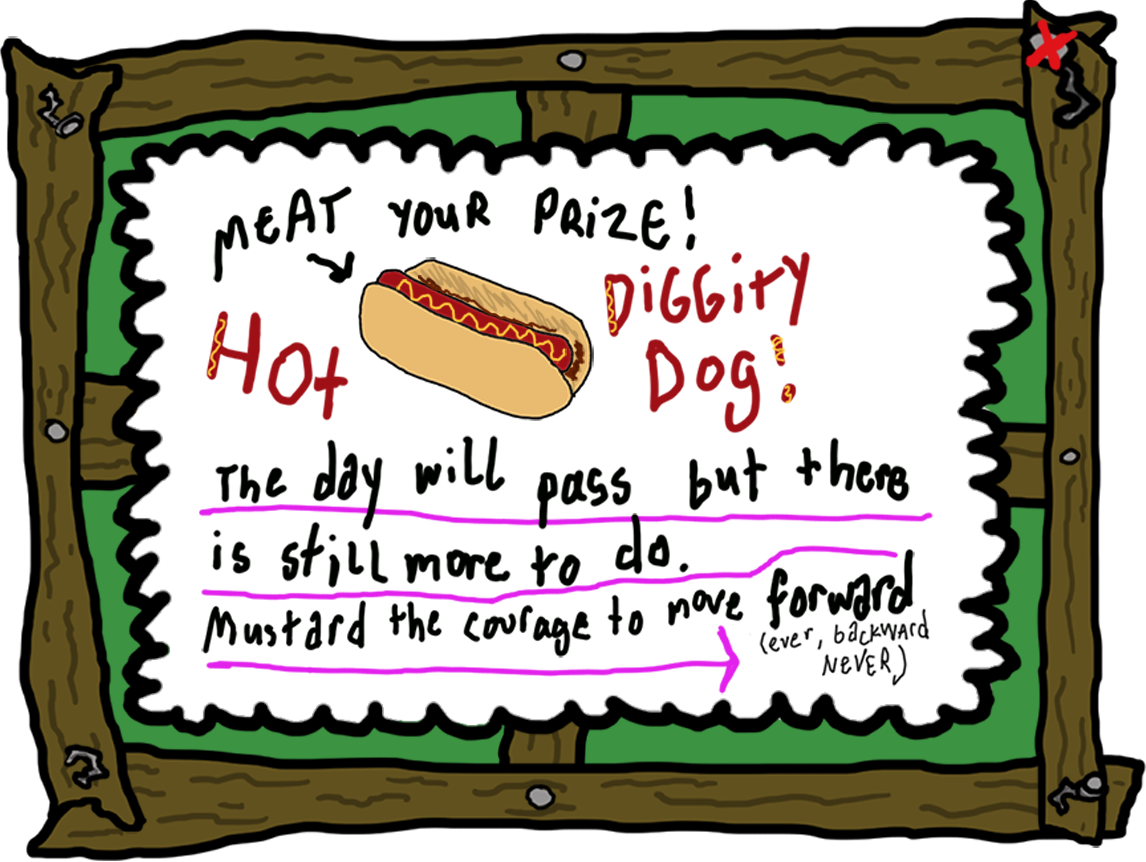 MEAT YOUR PRIZE!
HOt DiGGitY
DOg!
The day will pass but there
is still more to do.
Mustard the courage to move forward
(ever, backward
NEVER)